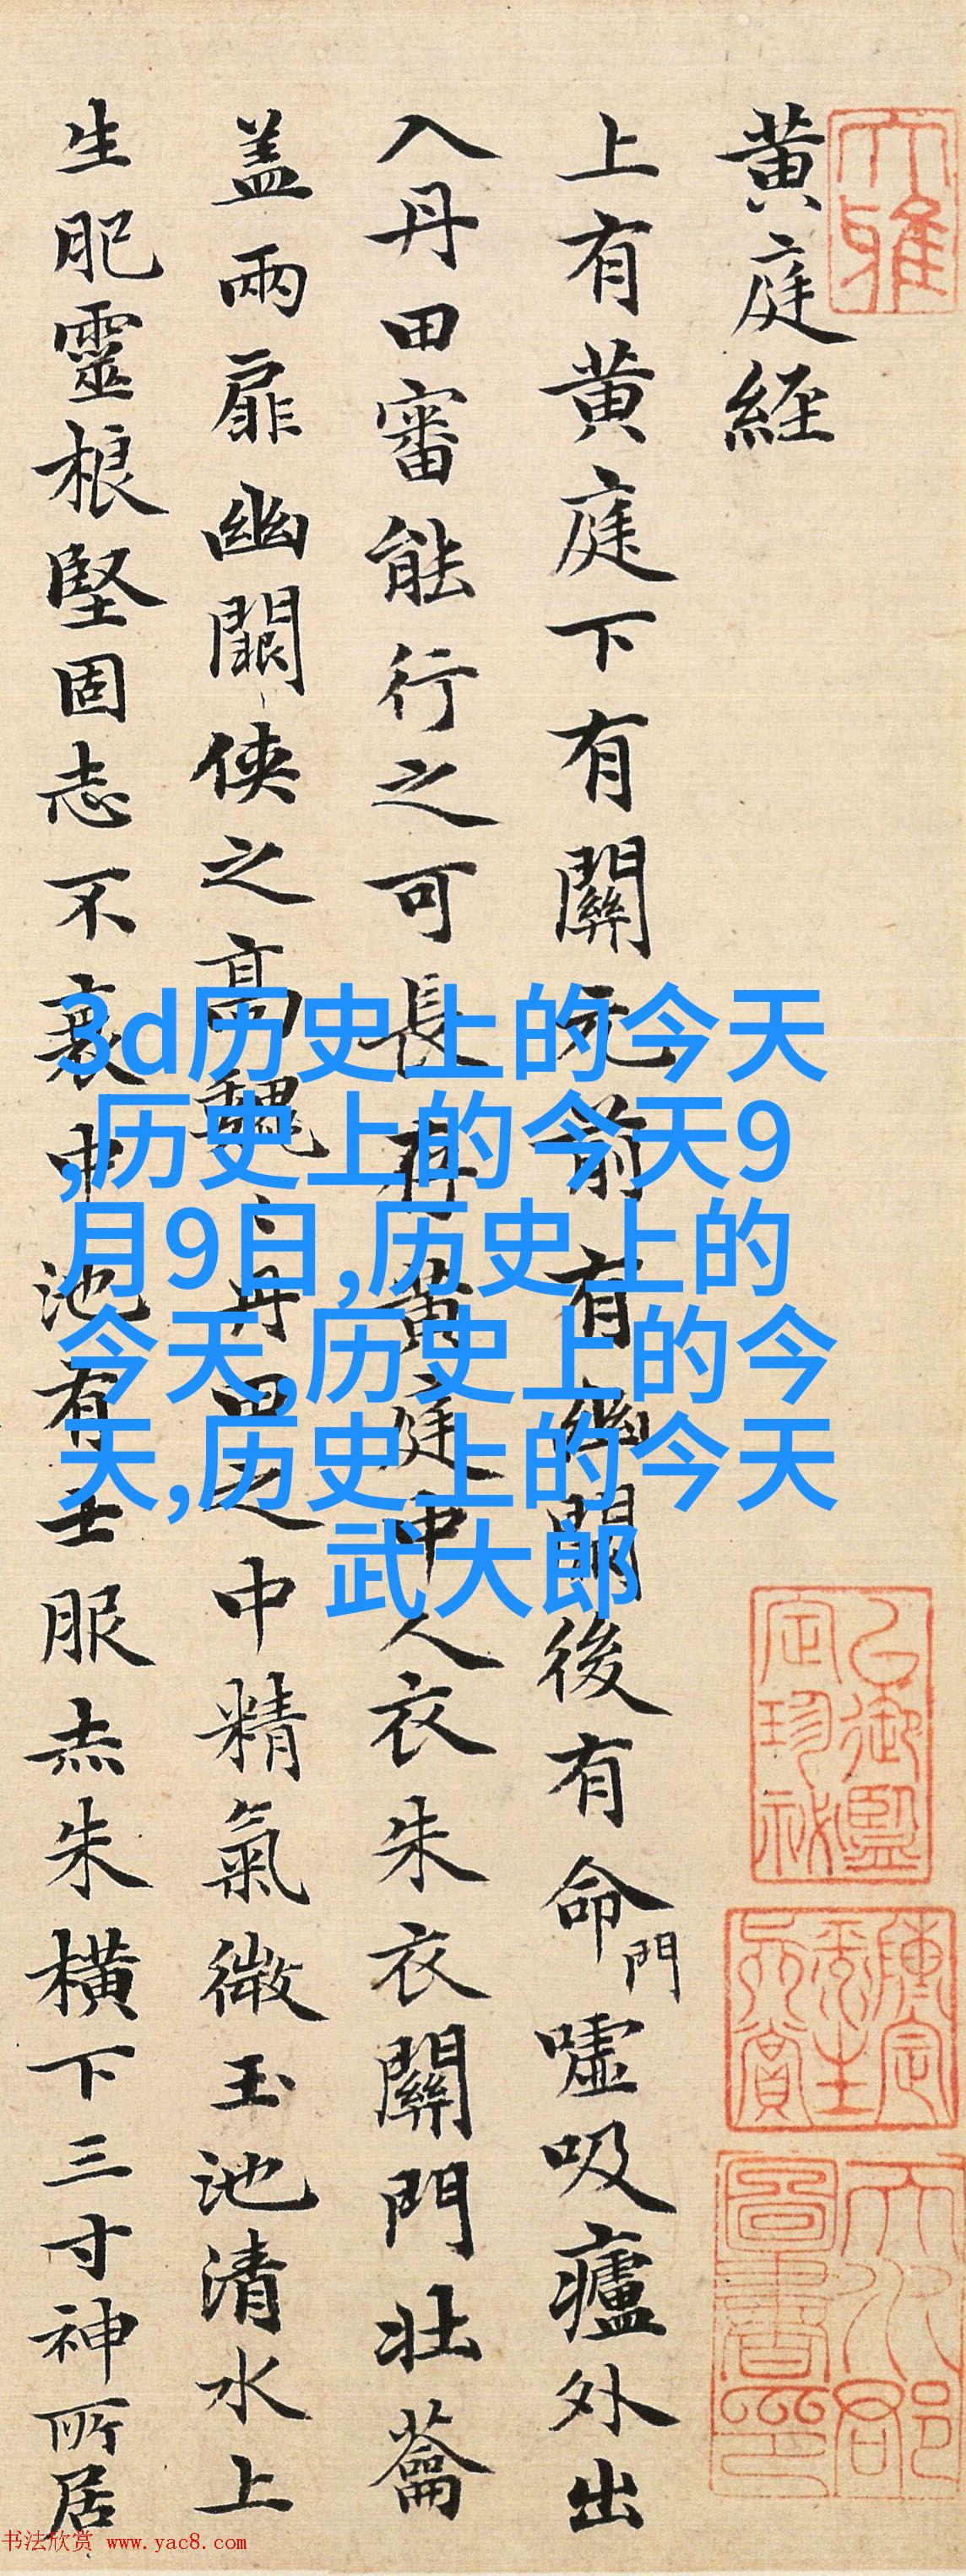 黄庭經
上有黄庭下有關元前有幽闕後有命門噓吸廬外出
入丹田審能行之可長存黄庭中人衣朱衣關門壯蘥
盖兩扉幽闕俠之高巍〻丹田之中精氣微玉池清水上
生肥靈根堅固志不衰中池有士服赤朱横下三寸神所居
大雅
3d历史上的今天
,历史上的今天9
月9日,历史上的
今天,历史上的今
天,历史上的今天
武大郎
书法欣赏 www.yac8.com